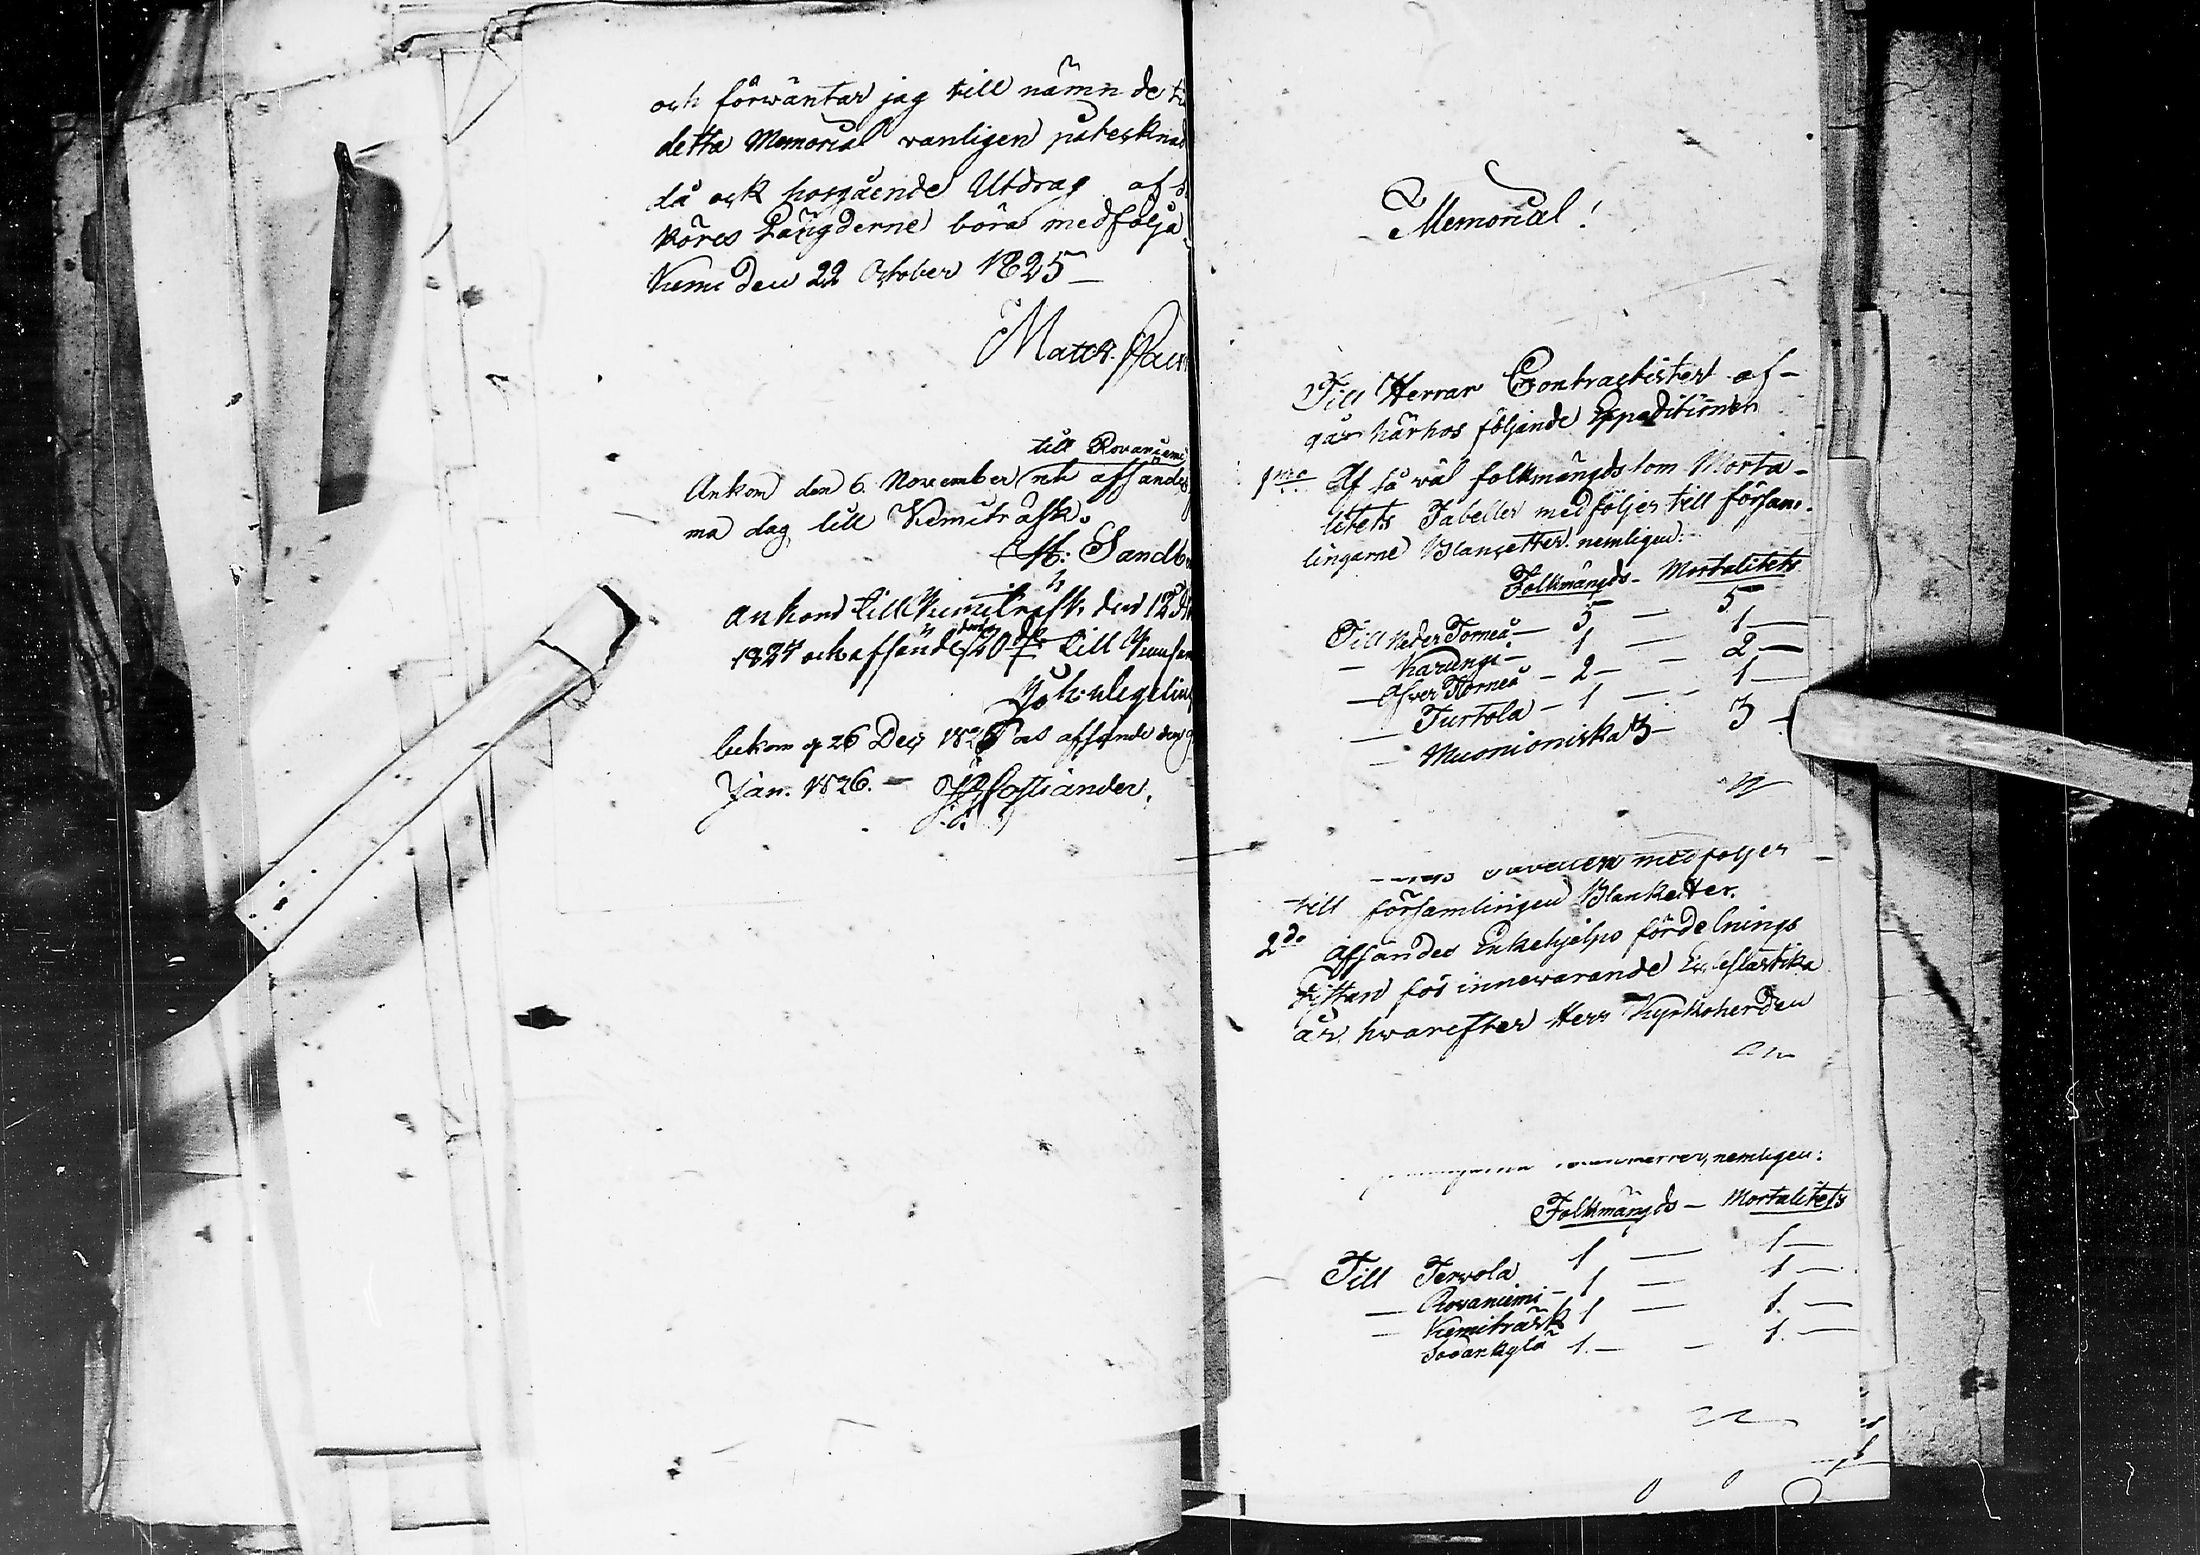 och förwäntar jag till nämn de
detta Memorial vanligen påteckna
då ock hosgående Utdrag af
köres Längderne böra medfölja
Kemi den 22 October 1825
Matth.
till Rovaniemi
Ankom den 6. November och afsändes
ma dag till Kemiträsk.
Sandb
ankom till Kemiträsk den 12
1825 och afsändes 20 till
bekom d 26 Dec 1825 afsände den
Jan. 1826. Castiander.
Memorial!
Till Herrar Contractister af-
går härhos följande Expeditioner
1mo Af så wäl folkmängds som Morta-
litets Tabeller medföljer till försam-
lingarne Blanqetter nemligen:
Folkmängds - Mortalitets
Till Neder Torneå - 5 - 5
- Karungi - 1 - 1 -
- Öfver Torneå - 2 - - 2 -
- Turtola - 1 - - 1 -
- Muonioniska 3 - 3 -
medföljer
till församlingen Blanketter.
2do Afsändes Enkehjelps fördelnings
för innewarande Ecclesiastik
år hwarefter Herr Kyrkoherden
nemligen:
Folkmängds - Mortalitets
Till Tervola 1 - 1 -
- Rovaniemi - 1 - 1 -
- Kemiträsk 1 - 1. -
Sodankylä 1. - - 1. -